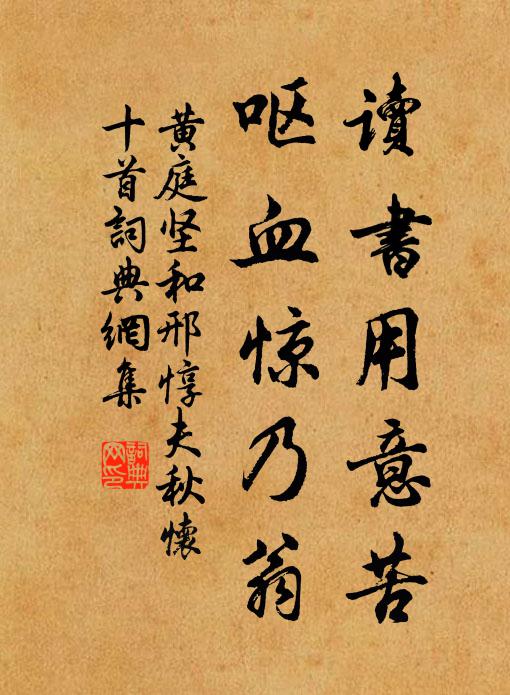 讀書用意苦
呕血惊乃翁
黄庭坚和邢惇夫秋懷
十首詞典網集
詞典
网印